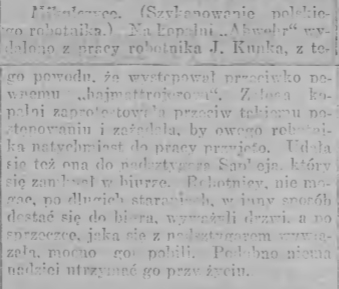 Mikulczyce. (Szykanowanie polskie-
go robotnika.) Na kopalni „Abwehr" wy-
dalono z pracy robotnika J. Kupka, z te-
go powodu, że występował przeciwko pe-
wnemu „hajmattrojerowi". Załoga ko-
palni zaprotestowała przeciw takiemu po-
stępowaniu i zażądała, by owego robotni-
ka natychmiast do pracy przyjęto. Udała
się też ona do nadsztygara który
się zamknął w biurze. Robotnicy, nie mo-
gąc, po długich staraniach, w inny sposób
dostać się do biura, wyważyli drzwi, a po
sprzeczce, jaka się z nadsztygarem wywią-
zała, mocno go pobili. Podobno niema
nadziei utrzymać go przy życiu.